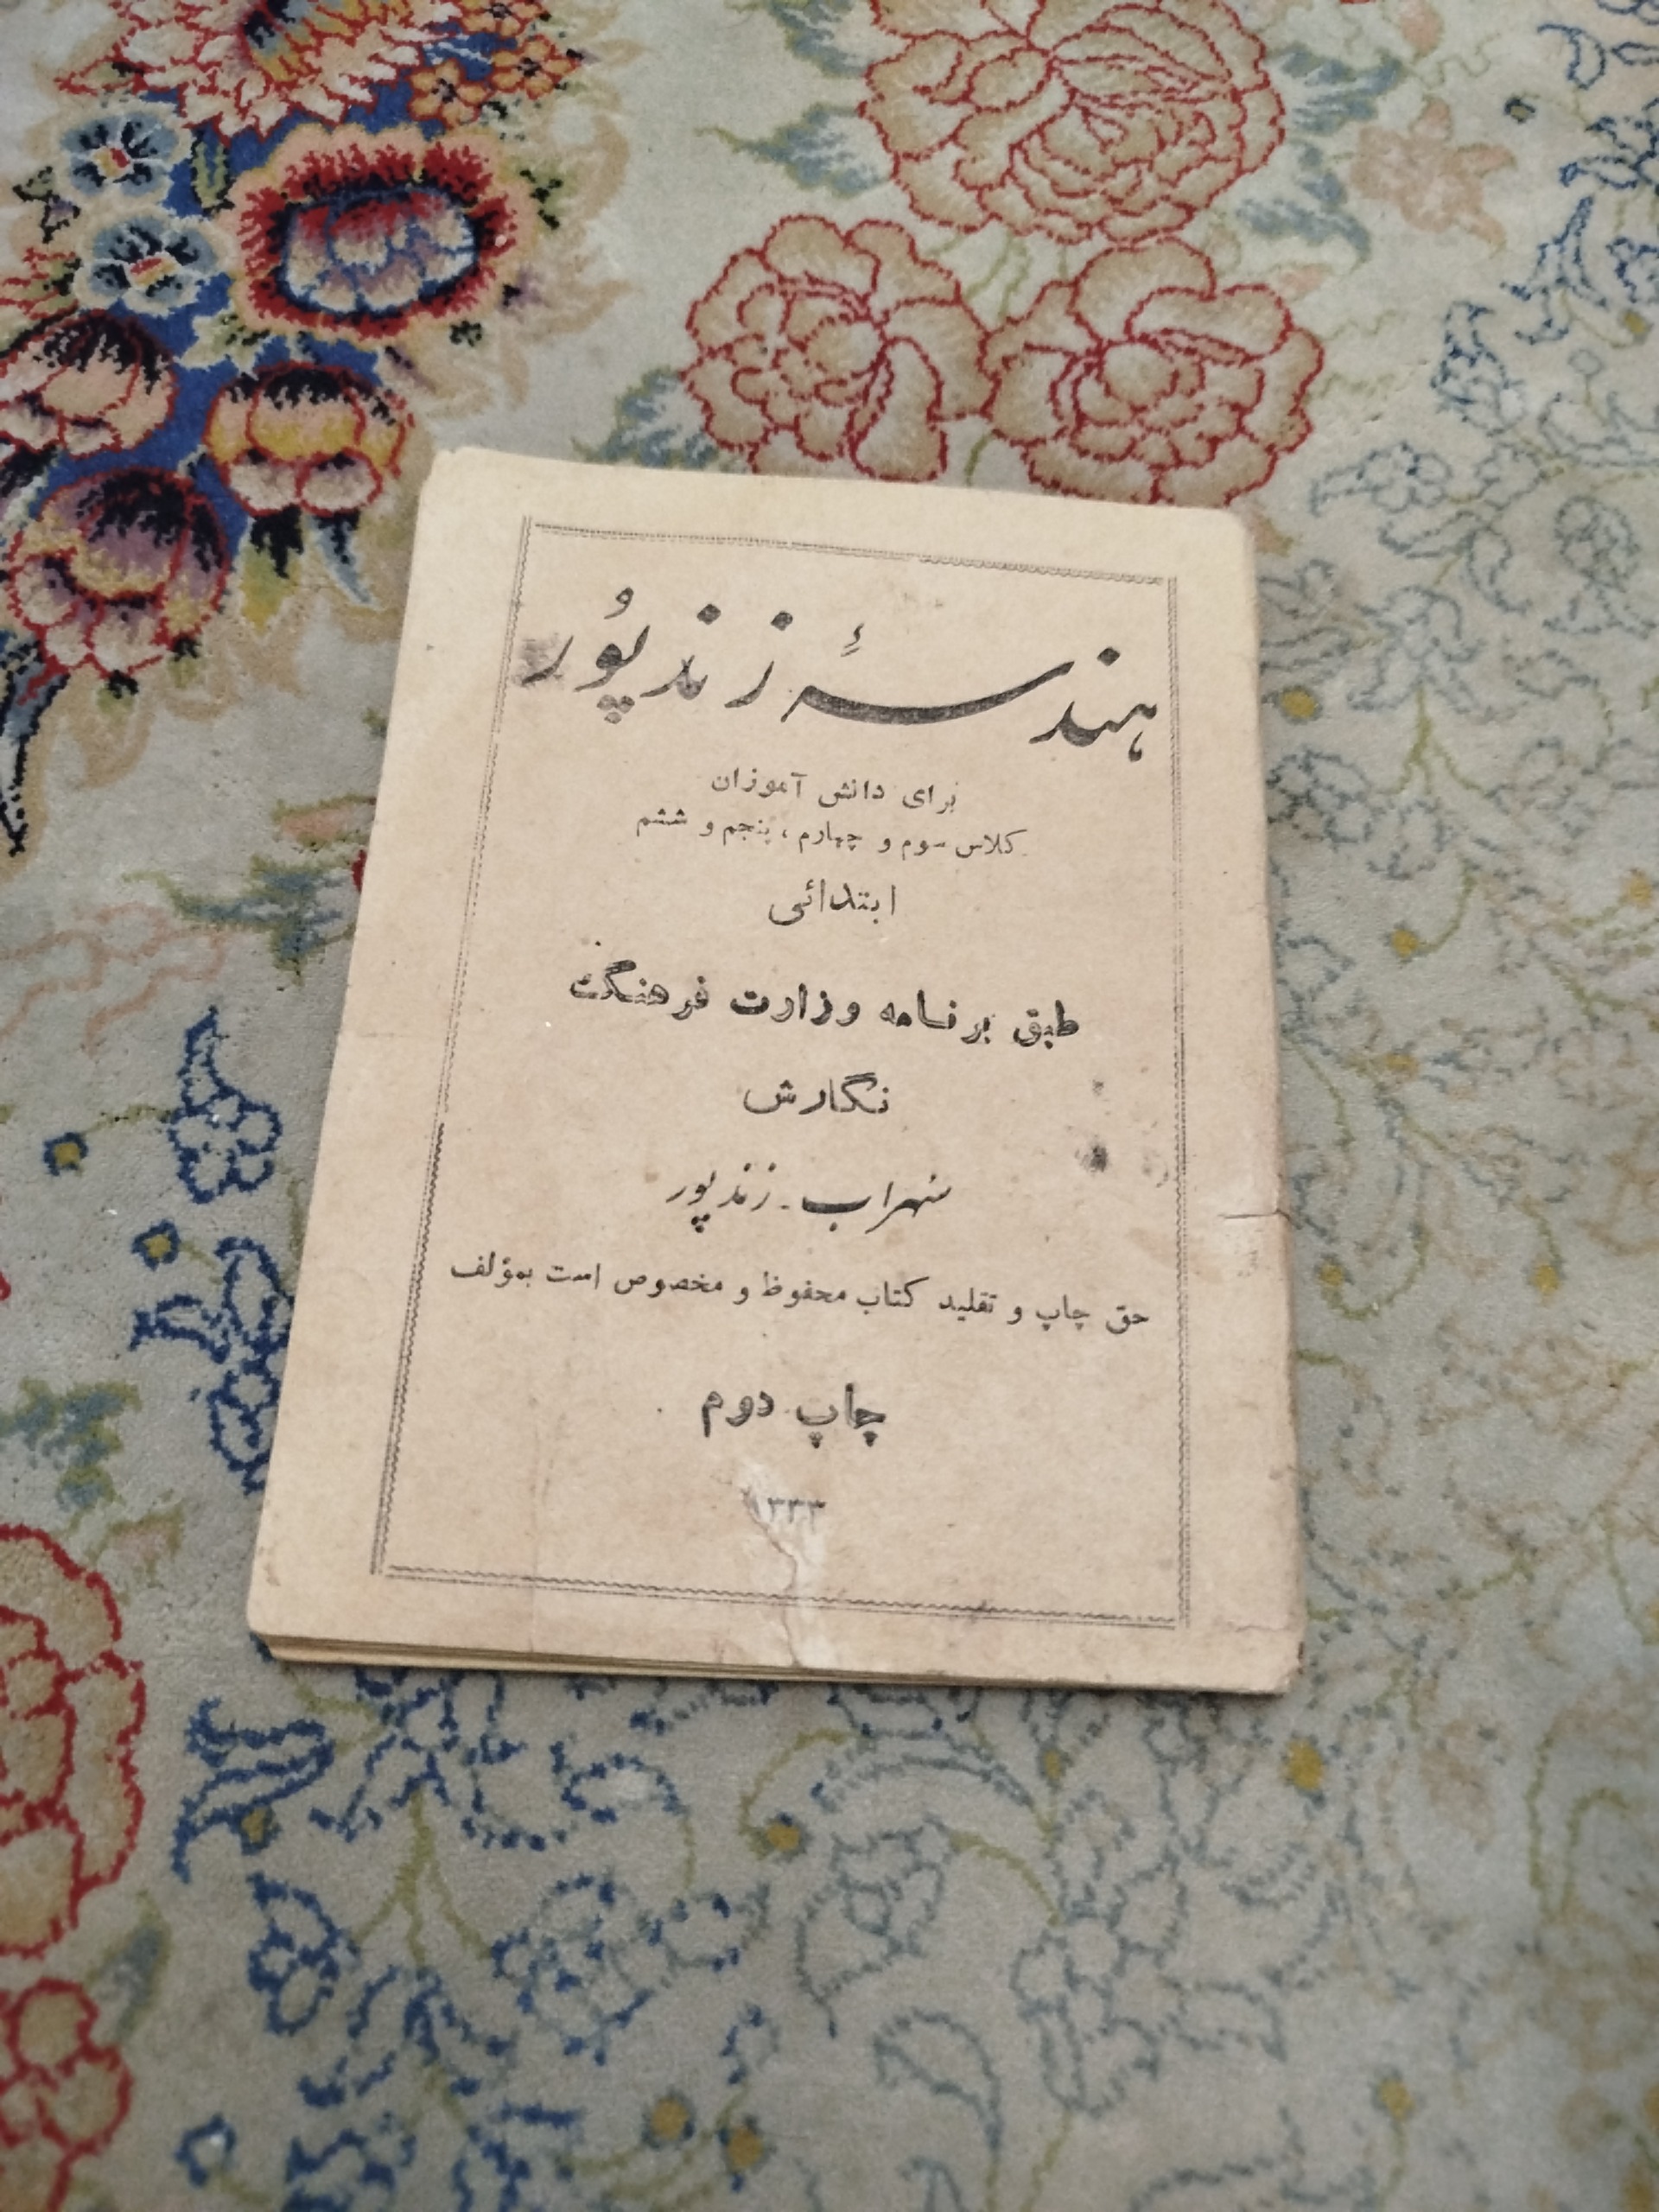 هندسهٔ زندپُور
برای دانش آموزان
کلاس سوم و چهارم ، پنجم و ششم
ابتدائی
طبق برنامه وزارت فرهنگ
نگارش
سهراب - زندپور
حق چاپ و تقلید کتاب محفوظ و مخصوص است بمؤلف
چاپ دوم
۱۳۳۳